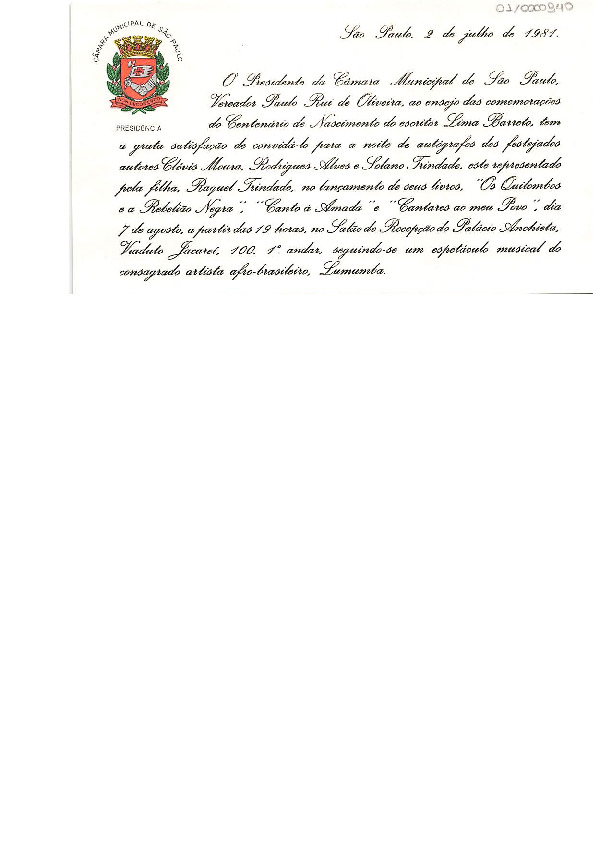 01/0000940
CÂMARA MUNICIPAL DE SÃO PAULO
PRESIDÊNCIA
São Paulo, 2 de julho de 1981.
O Presidente da Câmara Municipal de São Paulo,
Vereador Paulo Rui de Oliveira, ao ensejo das comemorações
do Centenário de Nascimento do escritor Lima Barreto, tem
a grata satisfação de convidá-lo para a noite de autógrafos dos festejados
autores Clóvis Moura, Rodrigues Alves e Solano Trindade, este representado
pela filha, Raquel Trindade, no lançamento de seus livros, "Os Quilombos
e a Rebelião Negra", "Canto à Amada" e "Cantares ao meu Povo", dia
7 de agosto, a partir das 19 horas, no Salão de Recepção do Palácio Anchieta,
Viaduto Jacareí, 100, 1º andar, seguindo-se um espetáculo musical do
consagrado artista afro-brasileiro, Lumumba.